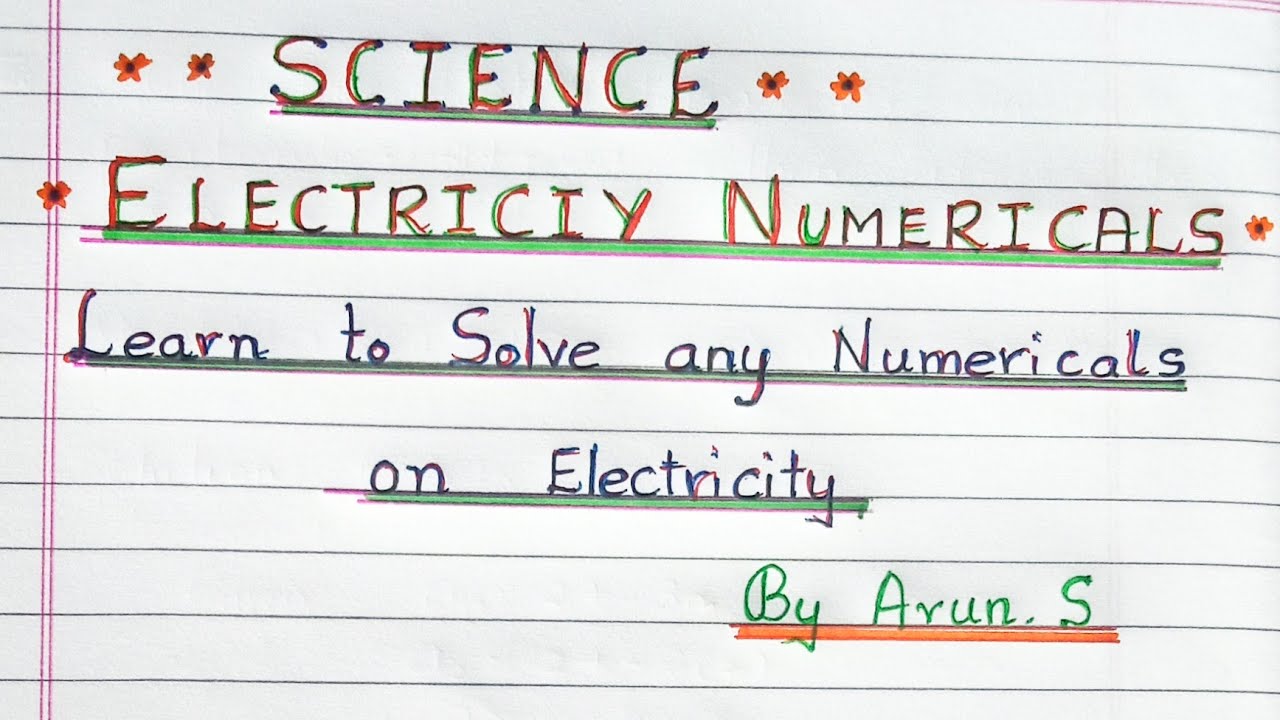 SCIENCE
ELECTRICIY NUMERICALS
Learn to Solve any Numericals
on Electricity
By Arun. S